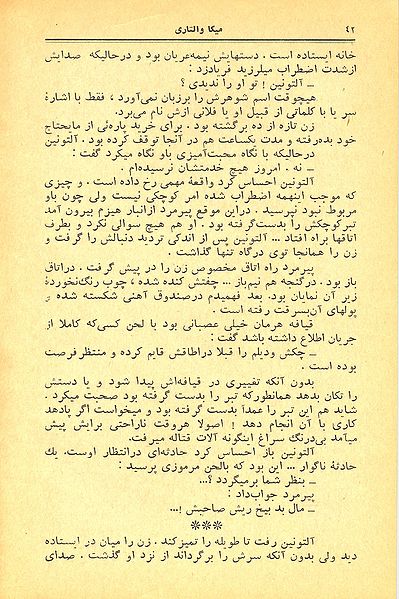 ۴۲
میکا والتاری
خانه ایستاده است . دستهایش نیمه‌عریان بود و درحالیکه صدایش
ازشدت اضطراب میلرزید فریادزد :
ــ آلتونین ! تو او را ندیدی ؟
هیچوقت اسم شوهرش را برزبان نمی‌آورد ، فقط با اشارهٔ
سر یا با کلماتی از قبیل او یا فلانی ازش نام می‌برد.
زن تازه از ده برگشته بود . برای خرید پاره‌ئی از مایحتاج
خود بده‌رفته و مدت یکساعت هم در آنجا توقف کرده بود . آلتونین
درحالیکه با نگاه محبت‌آمیزی باو نگاه میکرد گفت :
ــ نه . امروز هیچ خدمتشان نرسیده‌ام .
آلتونین احساس کرد واقعهٔ مهمی رخ داده است . و چیزی
که موجب اینهمه اضطراب شده امر کوچکی نیست ولی چون باو
مربوط نبود نپرسید . دراین موقع پیرمرد ازانبار هیزم بیرون آمد
تبرکوچکش را بدست‌گرفته بود . او هم هیچ سوالی نکرد و بطرف
اتاقها براه افتاد ... آلتونین پس از اندکی تردید دنبالش را گرفت و
زن را همانجا توی درگاه تنها گذاشت .
پیرمرد راه اتاق مخصوص زن را در پیش گرفت . دراتاق
باز بود . درگنجه هم نیم‌باز ... چفتش کنده شده ، چوب رنگ‌نخوردهٔ
زیر آن نمایان بود. بعد فهمیدم درصندوق آهنی شکسته شده و
پولهای آن‌بسرقت رفته است .
قیافه هرمان خیلی عصبانی بود و با لحن کسی‌که کاملا از
جریان اطلاع داشته باشد گفت :
ــ چکش ودیلم را قبلا دراطاقش قایم کرده و منتظرفرصت
بوده است .
بدون آنکه تغییری در قیافه‌اش پیدا شود و یا دستش
را تکان بدهد همانطورکه تبر را بدست گرفته بود صحبت میکرد .
شاید هم این تبر را عمداً بدست گرفته بود و میخواست اگر پادهد
کاری با آن انجام دهد ! اصولا هروقت ناراحتی برایش پیش
میآمد بی‌درنگ سراغ اینگونه آلات قتاله میرفت.
آلتونین باز احساس کرد حادثه‌ای درانتظار اوست. یك
حادثهٔ ناگوار ... این بود که بالحن مرموزی پرسید :
ــ بنظر شما برمیگردد ؟...
پیرمرد جواب‌داد :
ــ مال بد بیخ ریش صاحبش !...
***
آلتونین رفت تا طویله را تمیزکند . زن را میان در ایستاده
دید ولی بدون آنکه سرش را برگرداند از نزد او گذشت . صدای